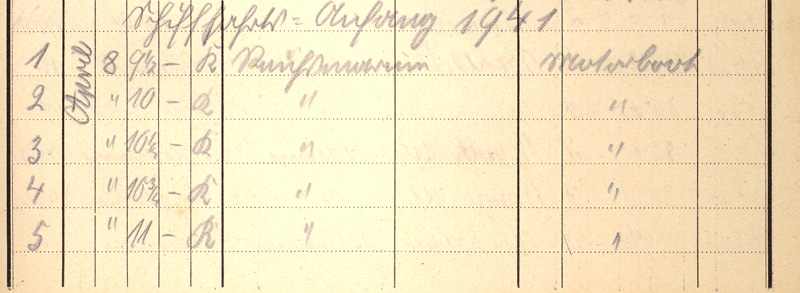 Schiffahrts = Anfang 1941
1 April 8 9½ – K Reichsmarine Motorboot
2 " 10 – K " "
3 " 10½ – K " "
4 " 10¾ – K " "
5 " 11 – K " "